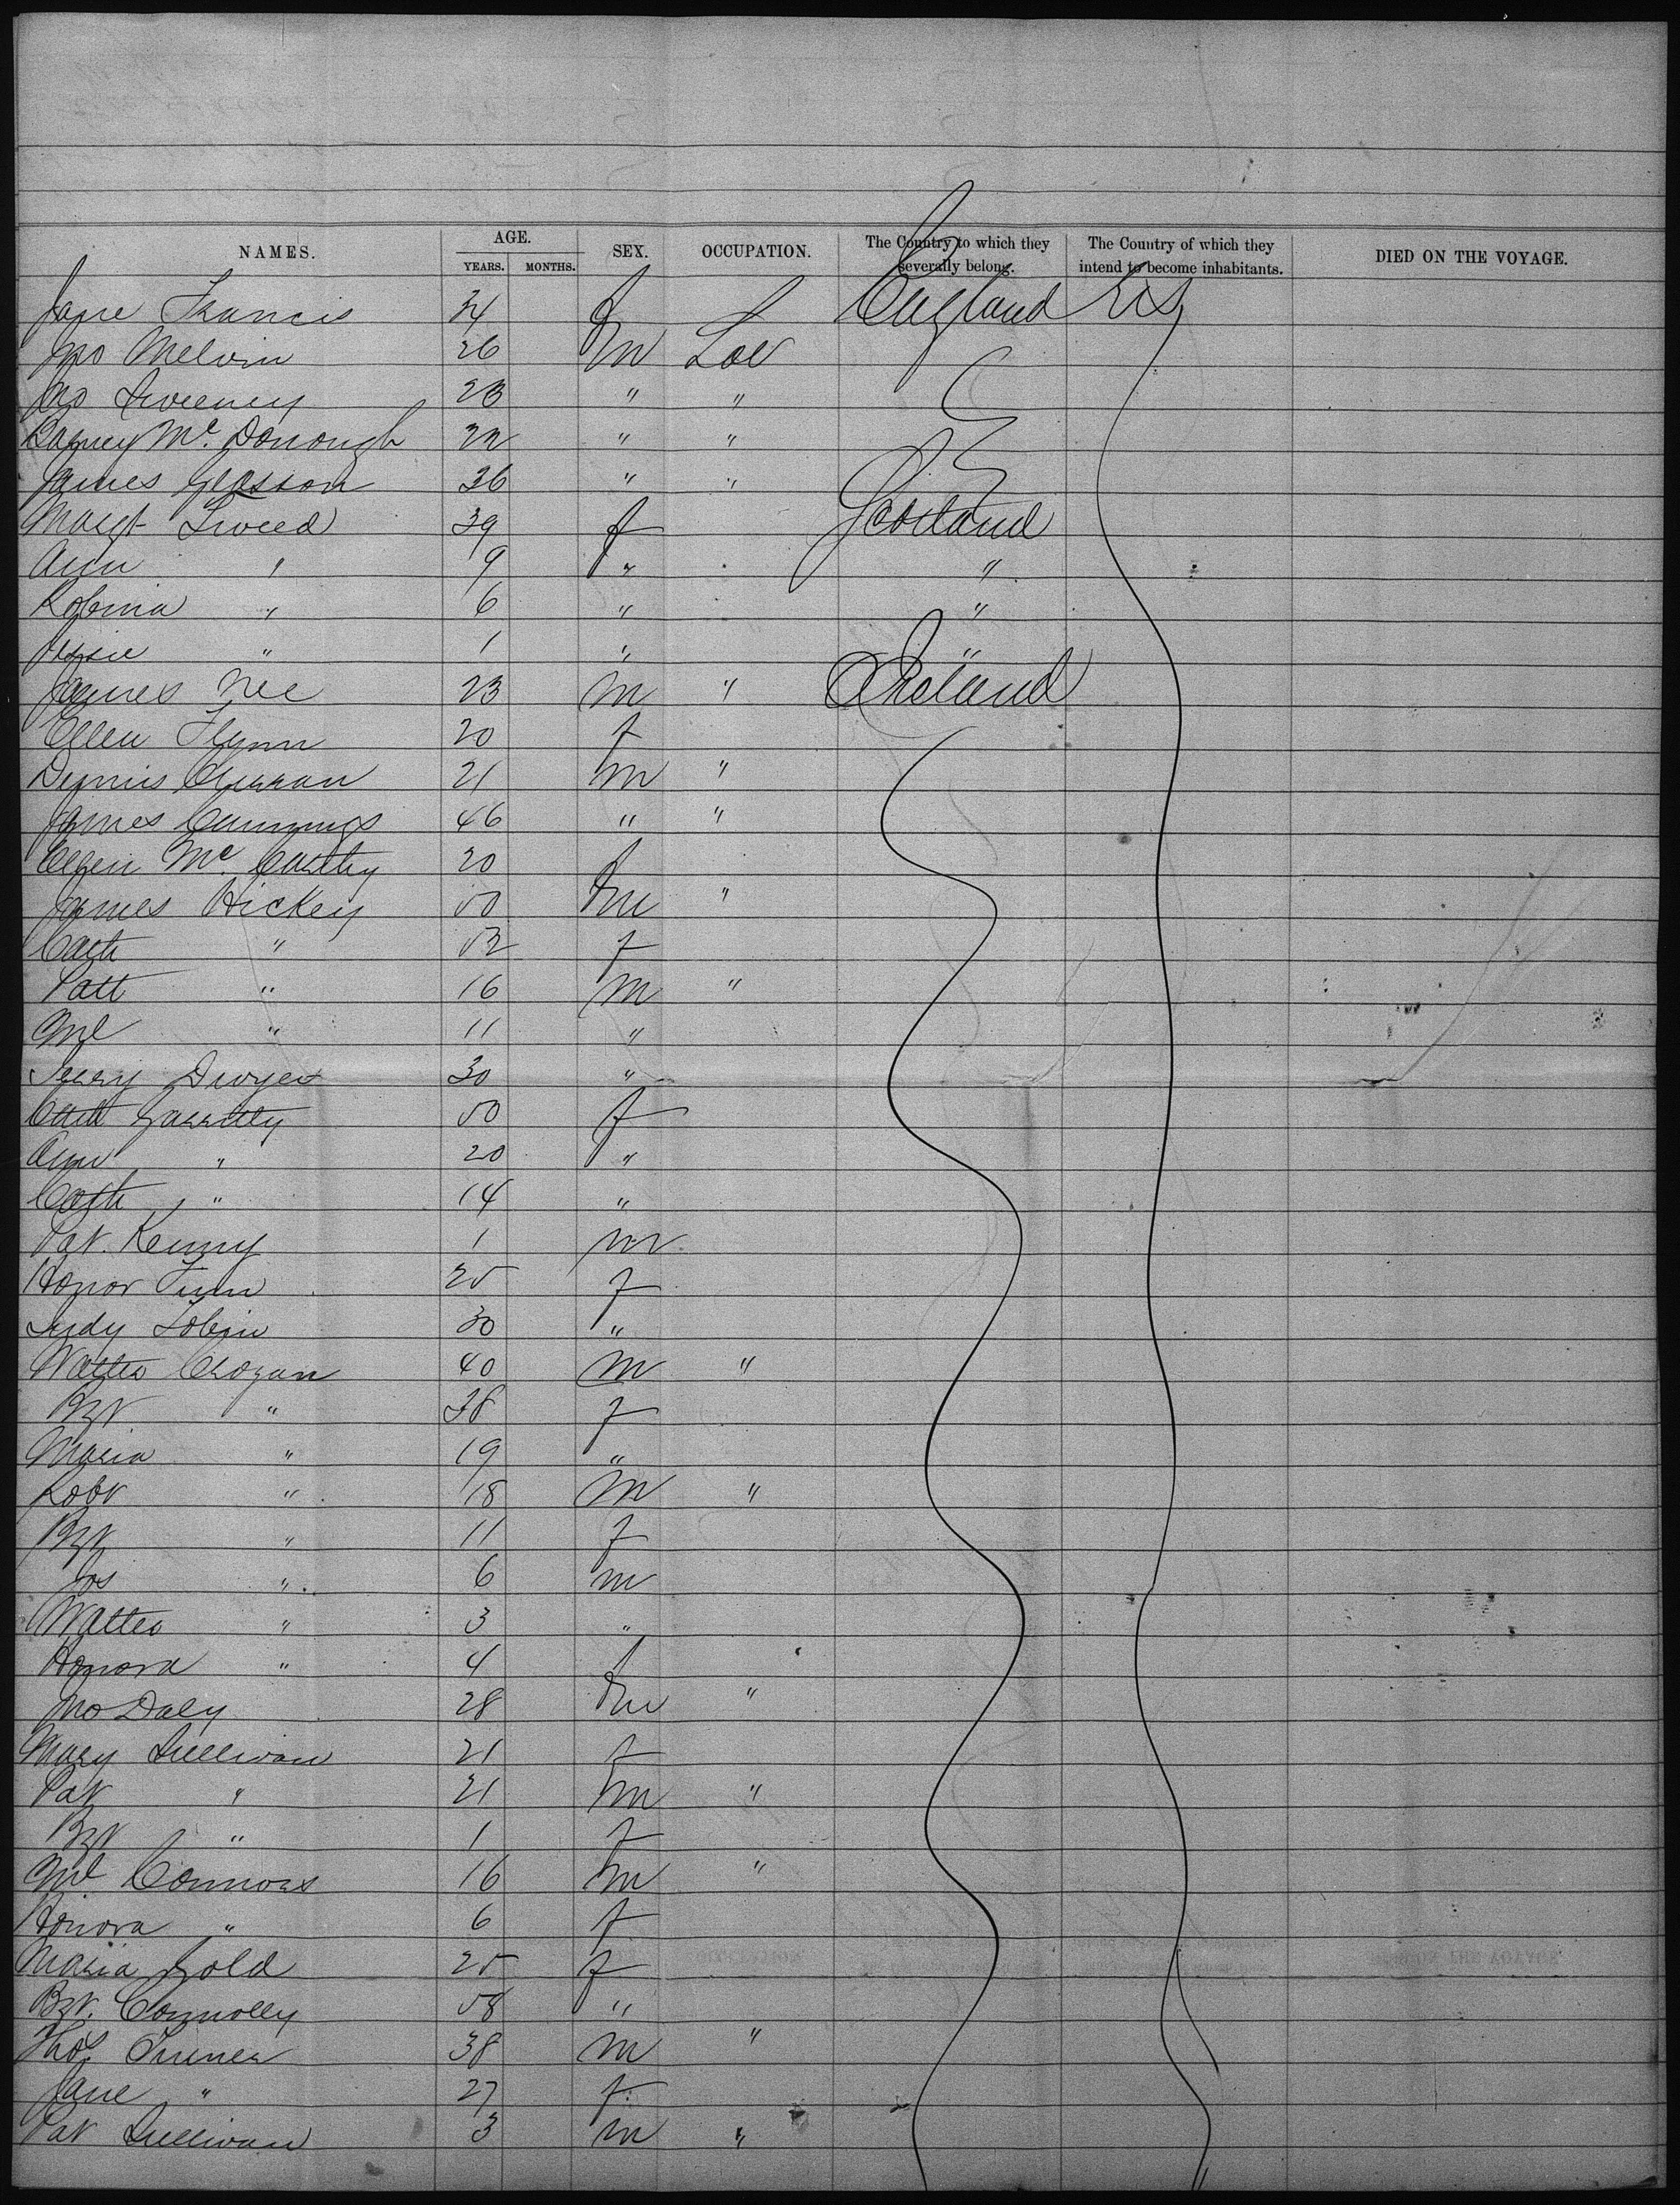 NAMES. AGE. YEARS. MONTHS. SEX. OCCUPATION. The Country to which they severally belong. The Country of which they intend to become inhabitants. DIED ON THE VOYAGE.
Jane Francis 34 f England US
Jno Melvin 26 m Lab
Jno Sweeney 23 " "
Barney Mc. Donough 22 " "
James Glasson 36 " "
Margt Tweed 39 f Scotland
Ann " 9 " "
Robina " 6 " "
Jessie " 1 " "
James Nee 23 m " Ireland
Ellen Flynn 20 f
Dennis Curran 21 m "
James Cummings 46 " "
Ellen Mc. Carthy 20 f
James Hickey 50 m "
Cath " 52 f
Patt " 16 m "
Ml " 11 "
Jerry Dwyer 30 "
Cath Garritty 50 f
Ann " 20 "
Cath " 14 "
Pat. Kenny 1 m
Honor Finn 25 f
Judy Tobin 30 "
Walter Crogan 40 m "
Bgt " 38 f
Maria " 19 "
Robt " 18 m "
Bgt " 11 f
Jos " 6 m
Walter " 3 "
Honora " 4 f
Jno Daly 28 m "
Mary Sullivan 21 f
Pat " 21 m "
Bgt " 1 f
Ml Connors 16 m "
Honora " 6 f
Maria Gold 25 f
Bgt. Connolly 58 "
Thos. Turner 38 m "
Jane " 27 f
Pat Sullivan 3 m "